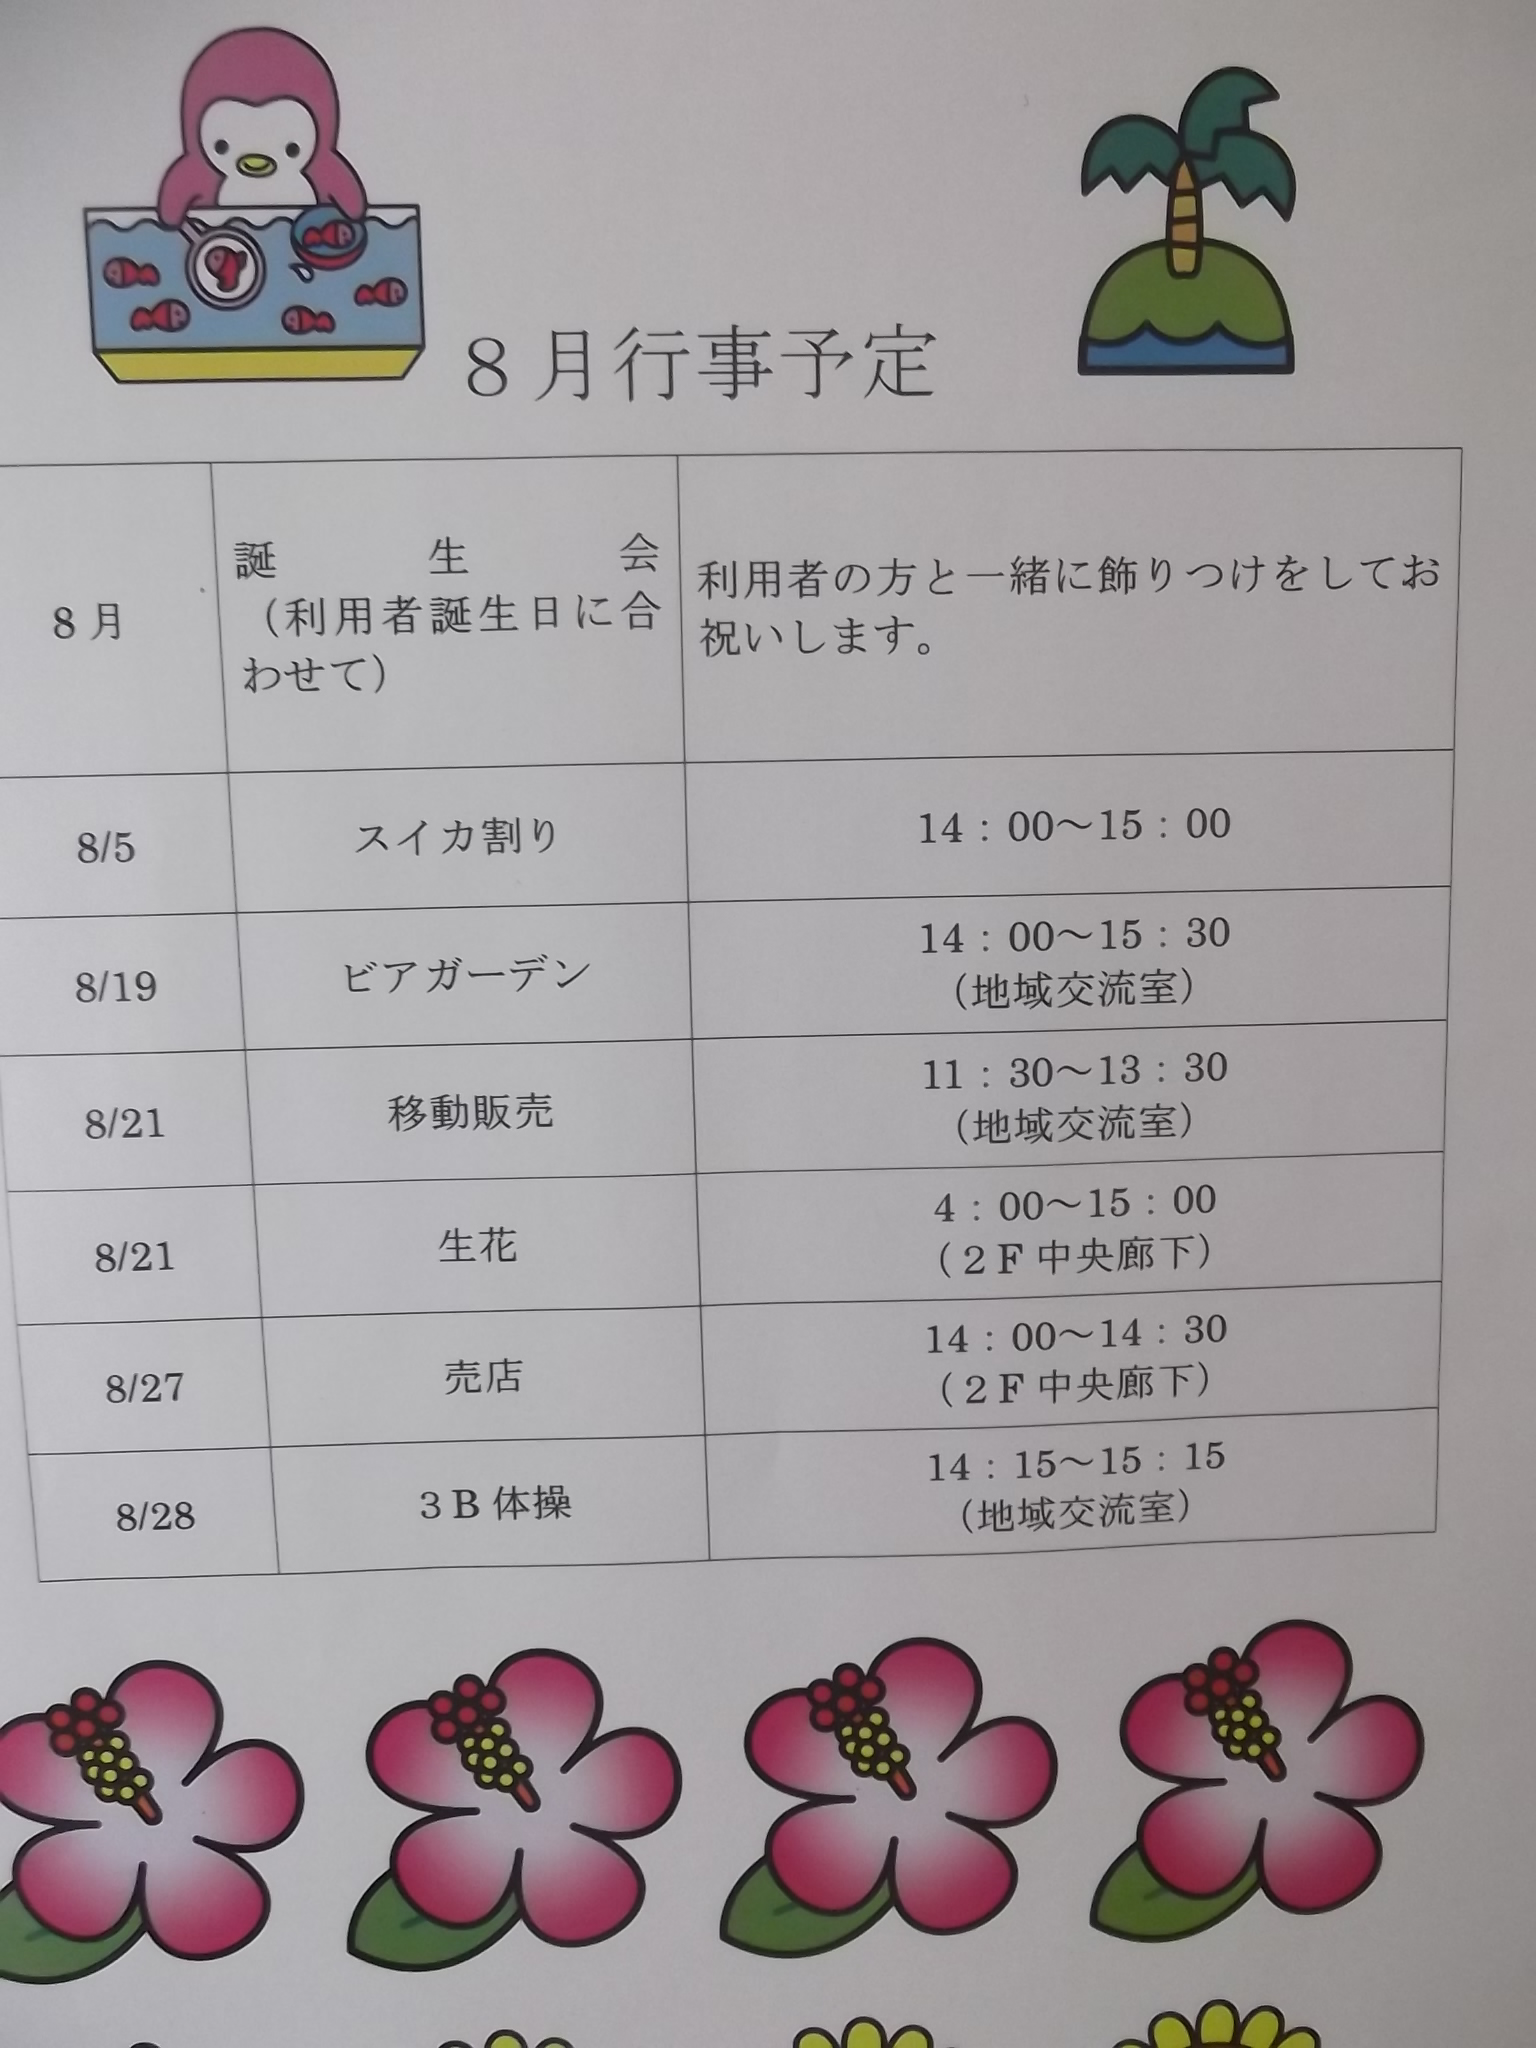 8月行事予定
8月
誕生会
（利用者誕生日に合
わせて）
利用者の方と一緒に飾りつけをしてお
祝いします。
8/5
スイカ割り
14：00～15：00
8/19
ビアガーデン
14：00～15：30
（地域交流室）
8/21
移動販売
11：30～13：30
（地域交流室）
8/21
生花
4：00～15：00
（2F中央廊下）
8/27
売店
14：00～14：30
（2F中央廊下）
8/28
3B体操
14：15～15：15
（地域交流室）